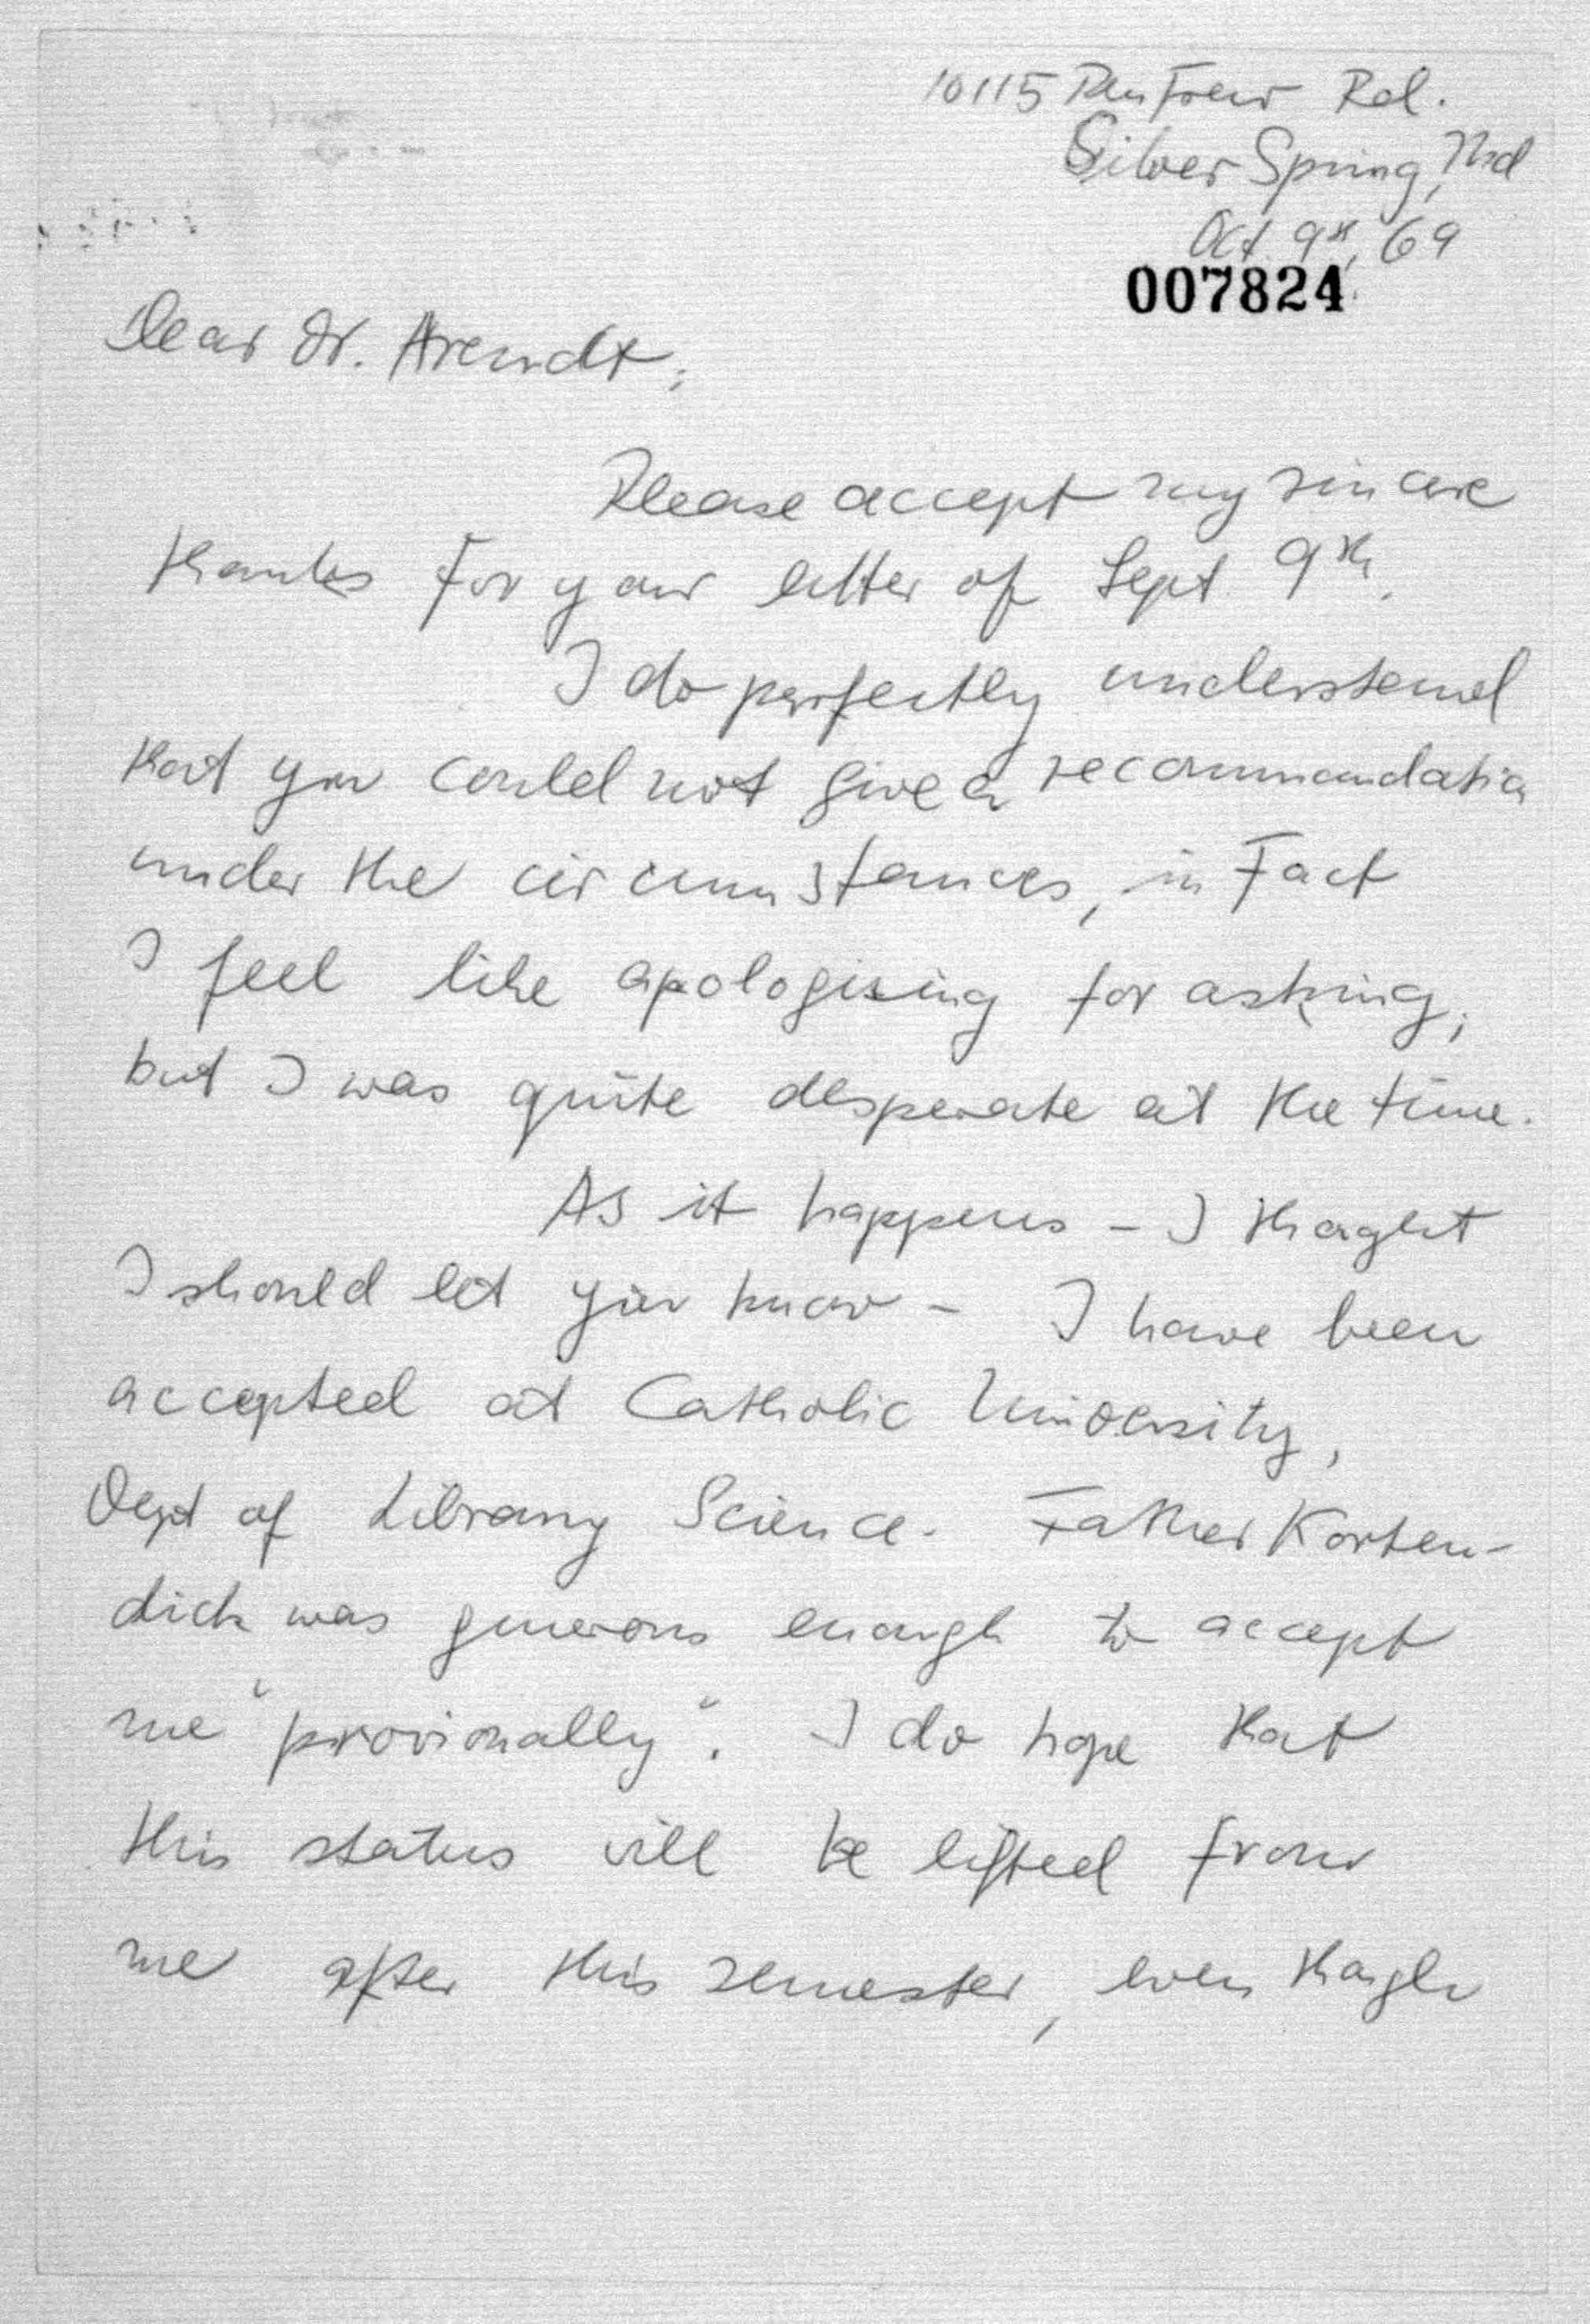 10115 Renfrew Rd.
Silver Spring, Md
Oct. 9th, 69
007824
Dear Dr. Arendt,
Please accept my sincere
thanks for your letter of Sept 9th.
I do perfectly understand
that you could not give a recommandation
under the circumstances, in Fact
I feel like apologising for asking,
but I was quite desperate at the time.
As it happens - I thought
I should let you know - I have been
accepted at Catholic University,
Dept of Library Science. Father Korten-
dick was generous enough to accept
me "provionally". I do hope that
this status will be lifted from
me after this semester, even though